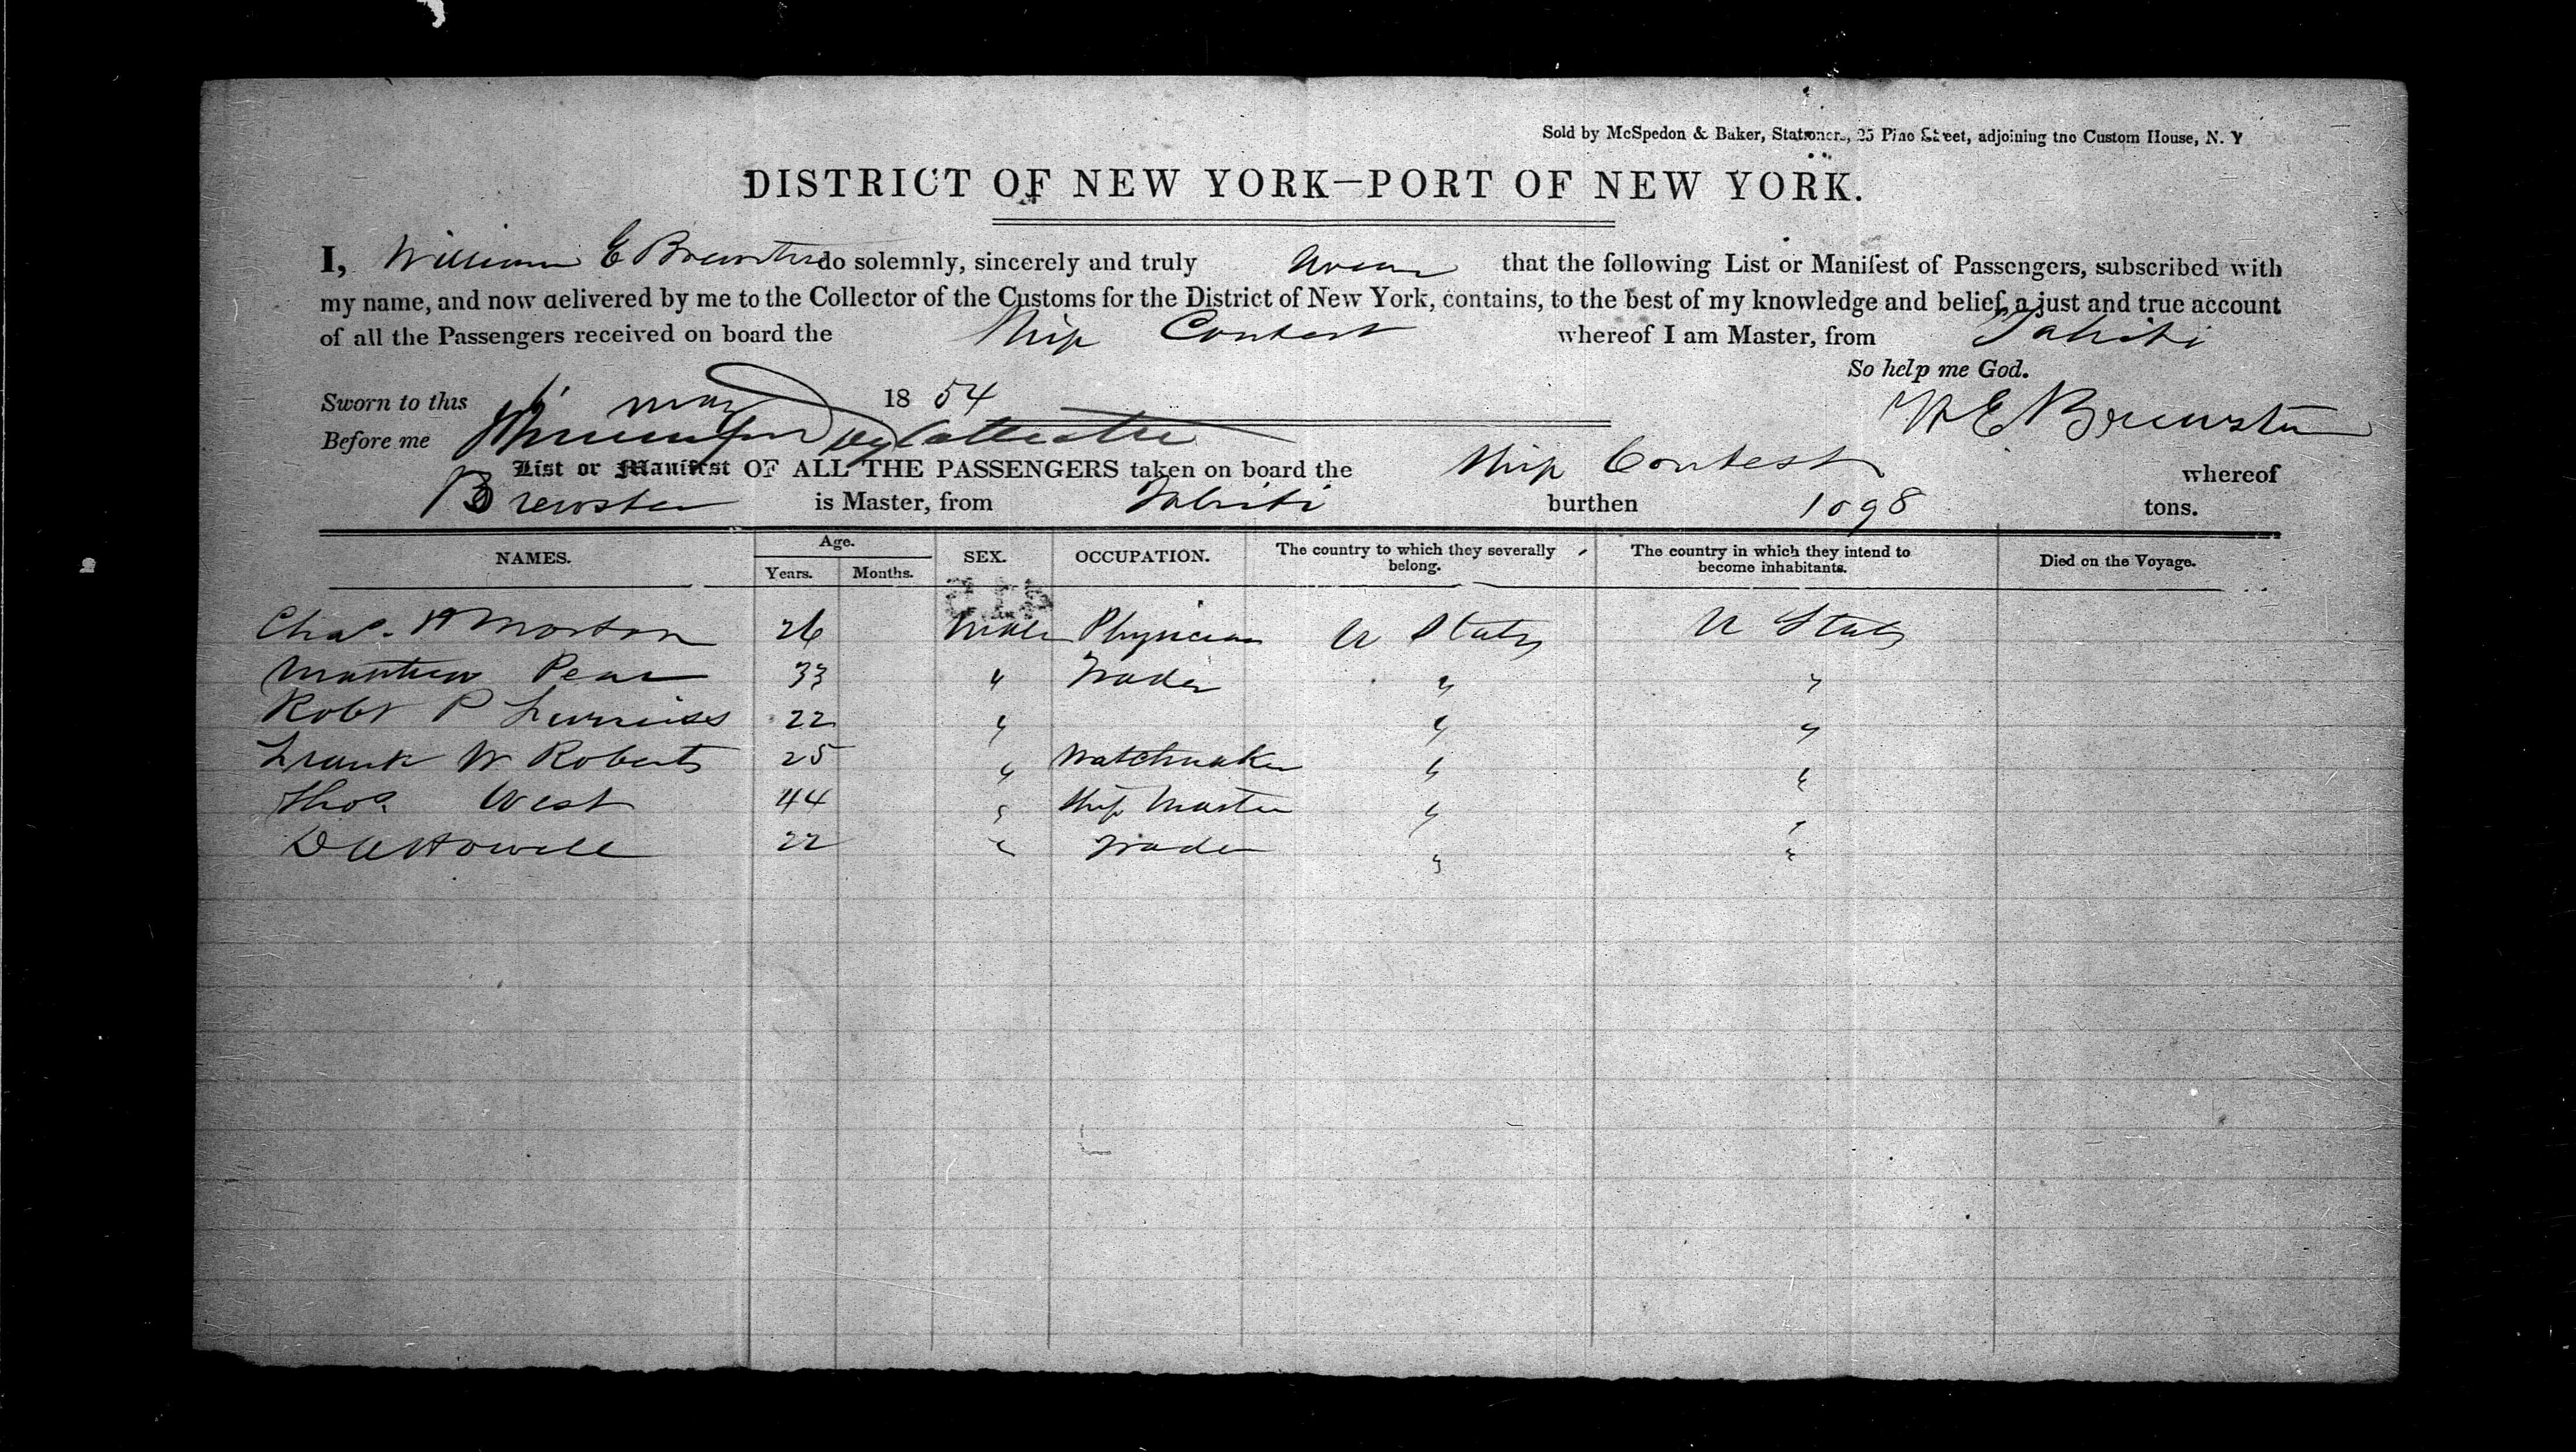 Sold by McSpedon & Baker, Stationers, 25 Pine Street, adjoining the Custom House, N. Y
DISTRICT OF NEW YORK—PORT OF NEW YORK.
I, William E Brewster do solemnly, sincerely and truly swear that the following List or Manifest of Passengers, subscribed with
my name, and now delivered by me to the Collector of the Customs for the District of New York, contains, to the best of my knowledge and belief, a just and true account
of all the Passengers received on board the Ship Contest whereof I am Master, from Tahiti
So help me God.
Sworn to this 1 May 1854
W E Brewster
Before me
List or Manifest OF ALL THE PASSENGERS taken on board the Ship Contest whereof
Brewster is Master, from Tahiti burthen 1098 tons.
NAMES. Age. Years. Months. SEX. OCCUPATION. The country to which they severally belong. The country in which they intend to become inhabitants. Died on the Voyage.
Chas. H Morton 26 Male Physician U States U States
Matthew 33 " Trader " "
Robt P 22 " " "
Frank W Roberts 25 " Watchmaker " "
Thos. West 44 " Ship Master " "
D A Howell 22 " Trader " "